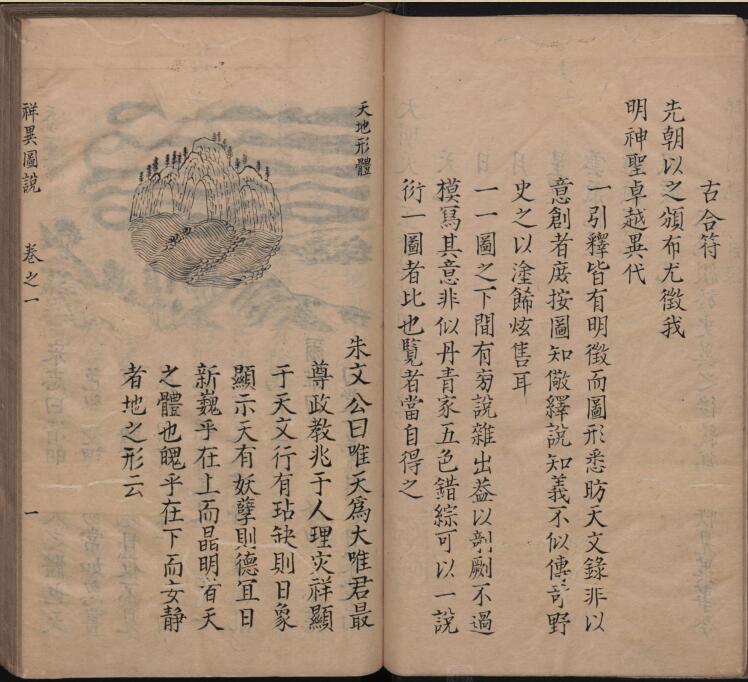 古合符
先朝以之頒布尤徵我
明神聖卓越異代
一引釋皆有明徵而圖形悉昉天文錄非以
意創者庶按圖知儆繹說知義不似傳奇野
史之以塗飾炫售耳
一一圖之下間有旁說雜出蓋以剞劂不過
模寫其意非似丹青家五色錯綜可以一說
衍一圖者比也覽者當自得之
天地形體
朱文公曰唯天為大唯君最
尊政教兆于人理災祥顯
于天文行有玷缺則日象
顯示天有妖孽則德宜日
新巍乎在上而晶明者天
之體也魄乎在下而安靜
者地之形云
祥異圖說
卷之一
一